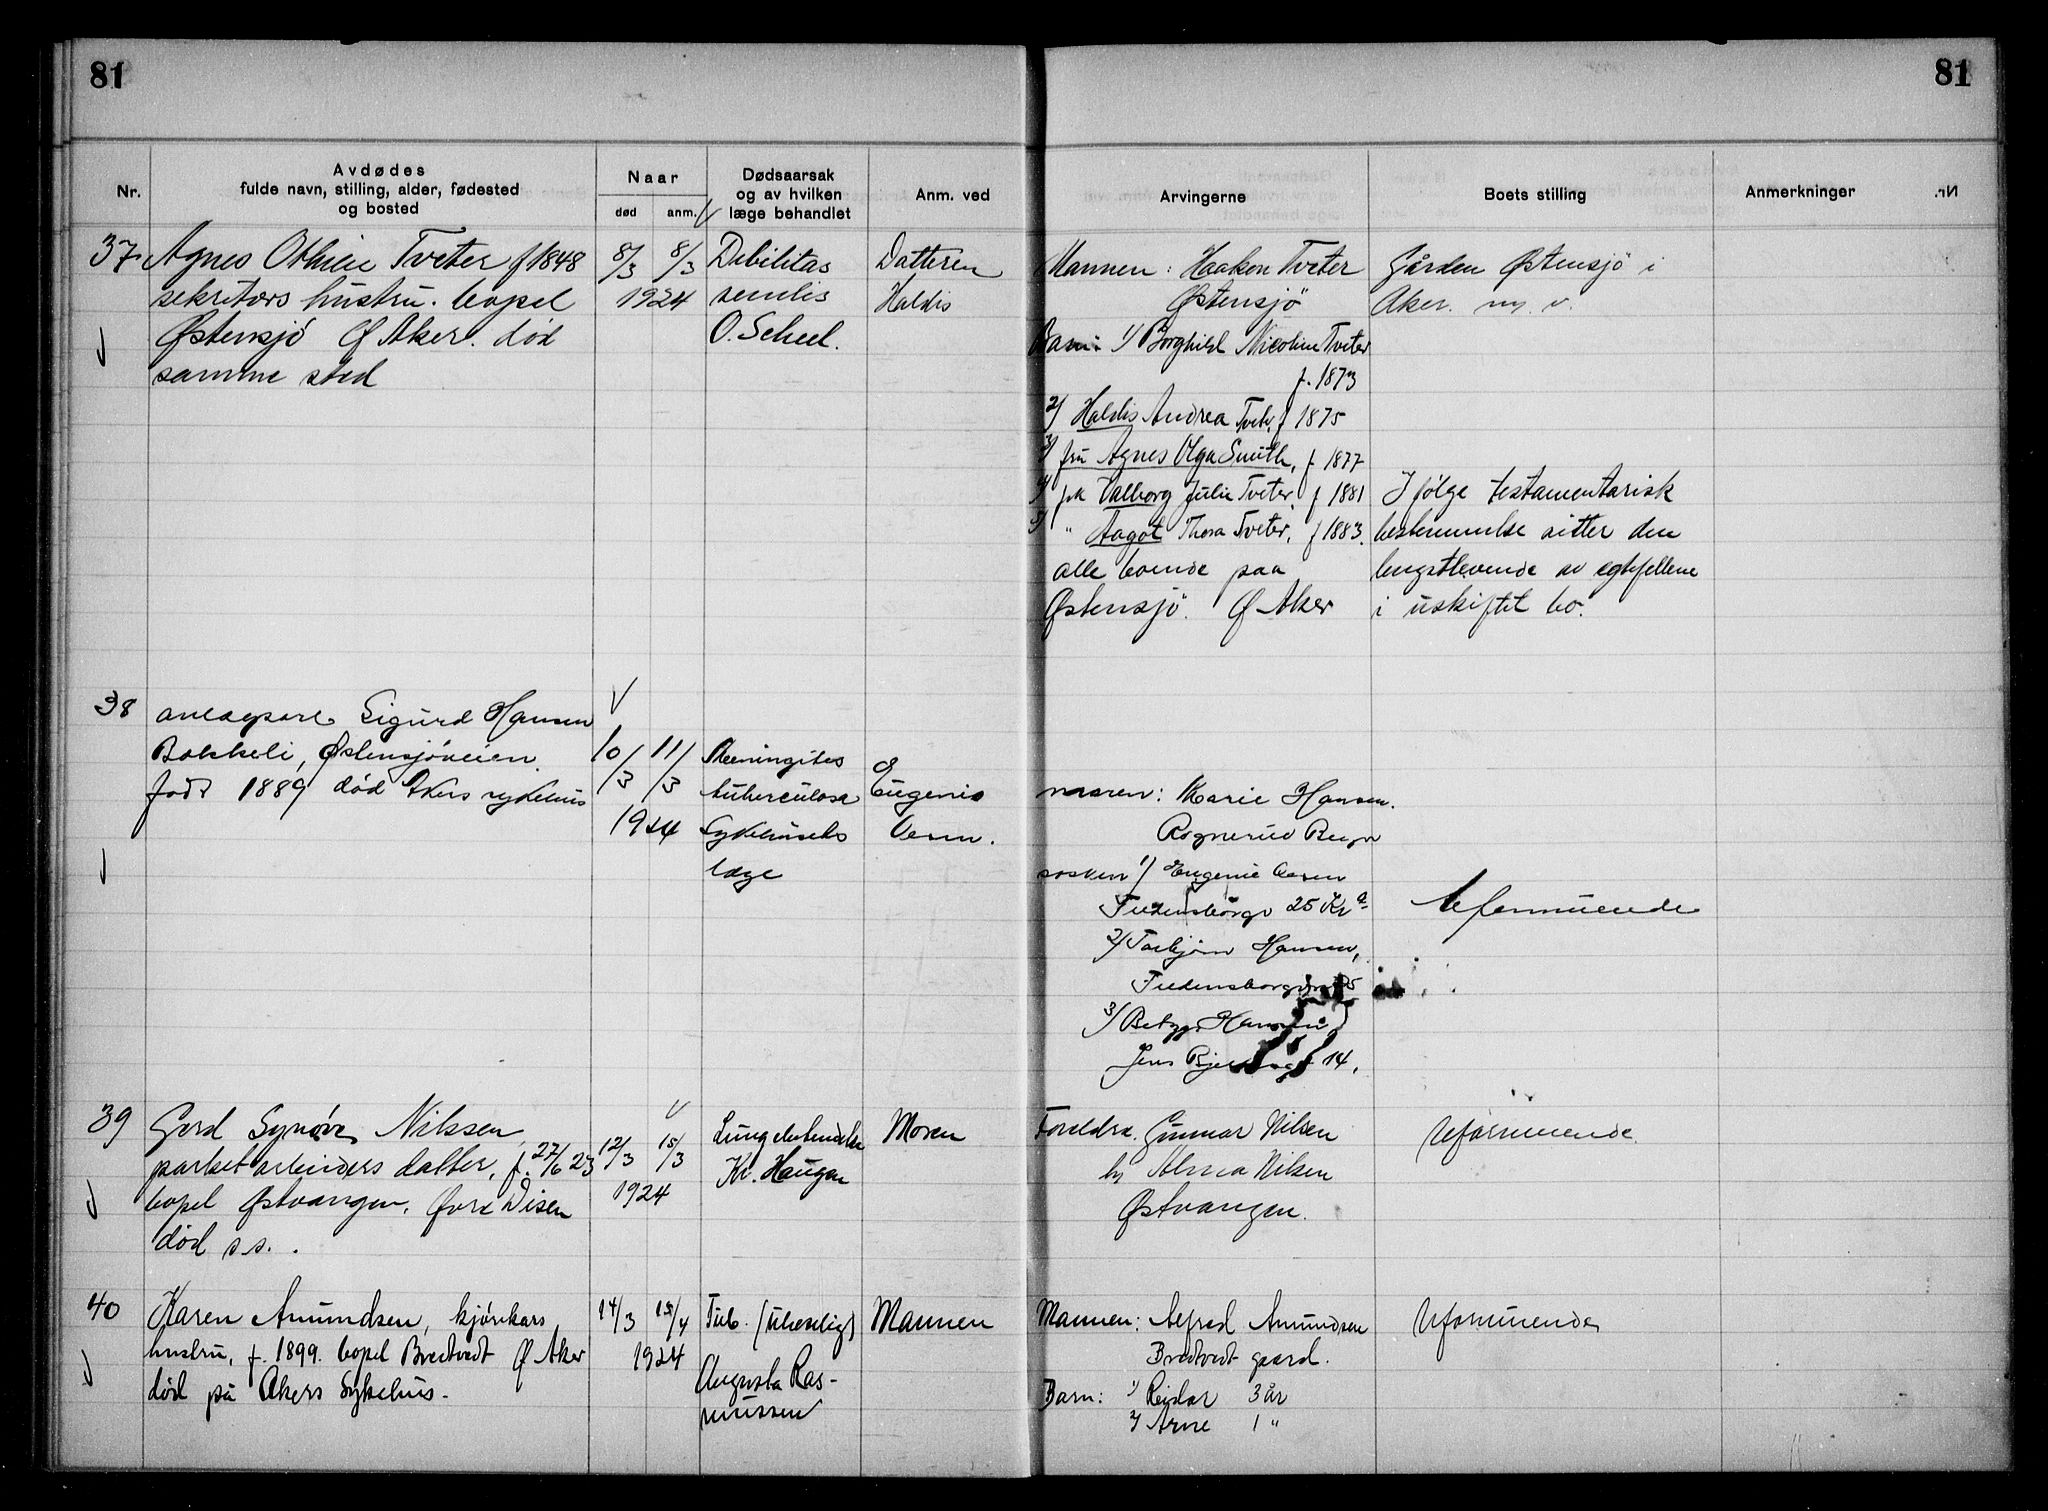 81
81
Nr.
Avdødes
fulde navn, stilling, alder, fødested
og bosted
Naar
død
anm.
Dødsaarsak
og av hvilken
læge behandlet
Anm. ved
Arvingerne
Boets stilling
Anmerkninger
37
Agnes Othilie Tveter f 1848
sekritærs hustru. bopel
Østensjö Ø Aker. død
samme sted
8/3 8/3
1924
Debilitas
senilis
O. Scheel.
Datteren
Haldis
Mannen: Haakon Tveter
Østensjö
Barn: 1/ Borghild Nicoline Tveter
f. 1873
2/ Haldis Andrea Tvet. f 1875
3/ fru Agnes Olga Smith, f 1877
4/ frk Valborg Julie Tveter, f 1881
5/ " Aagot Thora Tveter, f 1883.
alle boende paa
Østensjö. Ø Aker
Gården Østensjö i
Aker. m. v.
I følge testamentarisk
bestemmelse sitter den
lengstlevende av egtefellene
i uskiftet bo.
38
Sigurd Hansen
Østensjöveien
født 1889 død Akers sykehus
10/3 11/3
1924
Meningites
tuberculosa
Sykehusets
læge
Eugenie
moren: Marie Hansen.
Rognerud
søsken 1/ Eugenie
Fredensborgv 25 Kr a
2/ Torbjørn Hansen,
3/ Hansen
Jens 14,
Uformuende
39
Gerd Synöve Nilssen
parketarbeiders datter, f. 27/6 23
bopel Østvangen, Øvre Disen
død s.s.
12/3 15/3
1924
Lungebetendelse
Kr. Haugan
Moren
Foreldre. Gunnar Nilsen
og Alma Nilsen
Østvangen.
Uformuende
40
Karen Amundsen, kjörekars
hustru, f. 1899. bopel Bredtvedt Ø Aker
død på Akers Sykehus.
14/3 15/4
1924
Tub. (uleselig)
Augusta Ras-
mussen
Mannen
Mannen: Alfred Amundsen
Bredtvedt gaard.
Barn: 1/ Reidar 3 år
2/ Arne 1 "
Uformuende